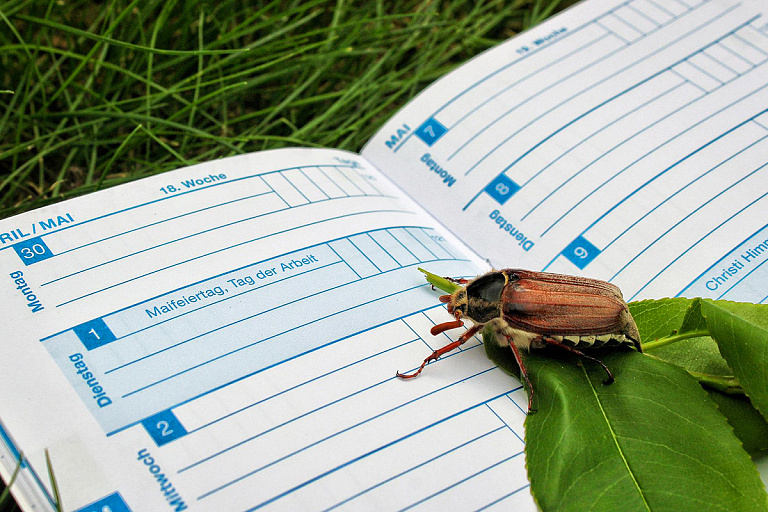 18. Woche
RIL / MAI
30
Montag
Maifeiertag, Tag der Arbeit
1
Dienstag
2
Mittwoch
19. Woche
MAI
7
Montag
8
Dienstag
9
Christi Himm